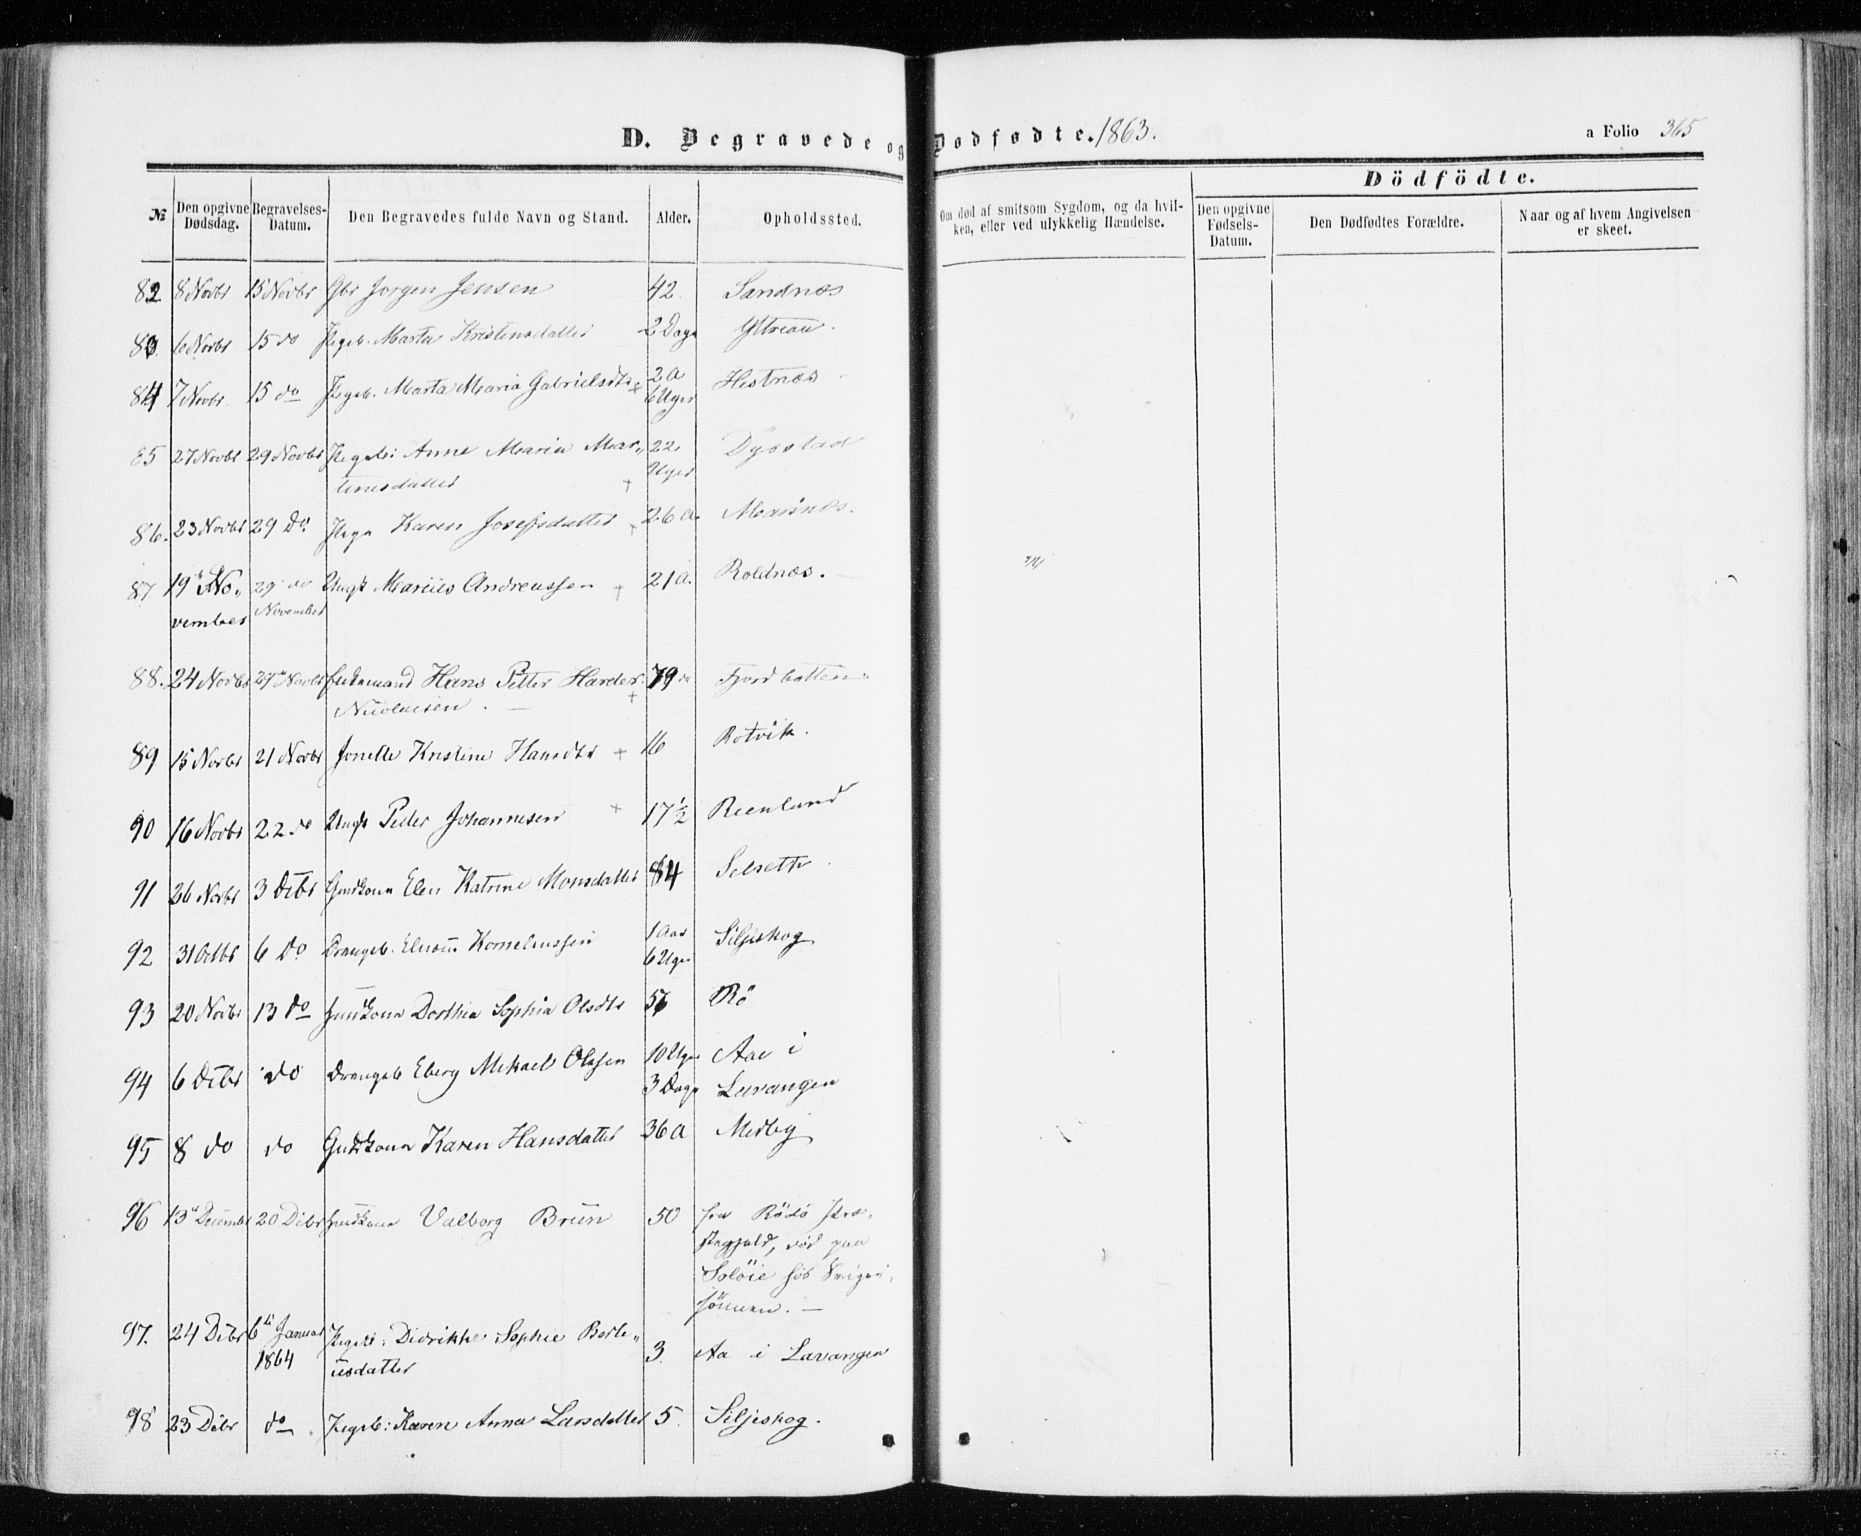 D. Begravede og Dødfødte. 1863.
a Folio 365
Dödfödte.
№ Den opgivne Dødsdag. Begravelses-Datum. Den Begravedes fulde Navn og Stand. Alder. Opholdssted. Om død af smitsom Sygdom, og da hvilken, eller ved ulykkelig Hændelse. Den opgivne Fødsels-Datum. Den Dødfødtes Forældre. Naar og af hvem Angivelsen er skeet.
82 8 Novbr 15 Novbr Gbr Jorgen Jensen 42. Sandnæs
83 10 Novbr 15 do Pigeb. Marta Kristensdatter 2 Dage Yttreau.
84 7 Novbr. 15 do Pigeb. Marta Maria Gabrielsdtr + 2 a
6 Uger Hestnæs
85 27 Novbr 29 Novbr Pigeb: Anne Maria Mar„ 22
Uger Dyrstad
tinesdatter +
86. 23 Novbr 29 do Pige Karen Josefsdatter + 26 a. Maarnæs.
87 19de No„ 29 do Ungk Marius Andreassen + 21 a. Roldnæs.
vember November
88. 24 Novbr 29de Novbr Hans Petter Harder 79 Fjordbotten
Nicolaisen. +
89 15 Novbr 21 Novbr Jonette Kristine Hansdtr + 16 Rotvik.
90 16 Novbr 22 do Ungk Peder Johannesen + 17½ Reenlund
91 26 Novbr 3 Debr Gmdkona Elen Katrine Monsdatter 84 Selsette
92 31 Octbr 6 do Drengeb. Kornelius­sen 1 Aar
6 Uger Siljeskog
93 20 Novbr 13 do Gmdkona Dorthea Sophia Olsdtr 56 Rö
94 6 Debr do Drengeb Eberg Mikael Olssen 10 Uger
3 Dage Aae i
Lavangen
95 8 do do Gmdkona Karen Hansdatter 36 a Medby
96 13de Decembr 20 Debr Gmdkona Valborg Brun 50 fra Rödö Præ„
stegjeld, död paa
Solöie hos Svigers
sönnen. —
97. 24 Debr 6te Januar
1864 Pigeb: Didrikke Sophie Berte„
usdatter 3. Aa i Lavangen
98 23 Debr do Pigeb: Karen Anna Larsdatter 5. Siljeskog.